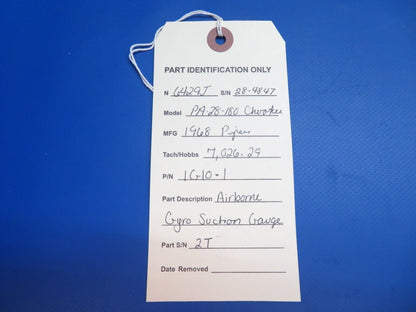 PART IDENTIFICATION ONLY
N 6429J S/N 28-4847
Model PA-28-180 Cherokee
MFG 1968 Piper
Tach/Hobbs 7,026.29
P/N 1G10-1
Part Description Airborne
Gyro Suction Gauge
Part S/N 2T
Date Removed